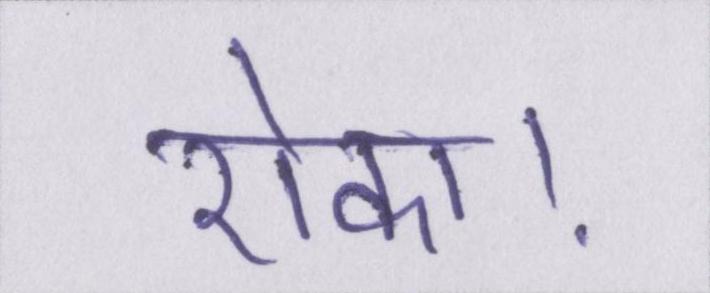 रोका।.